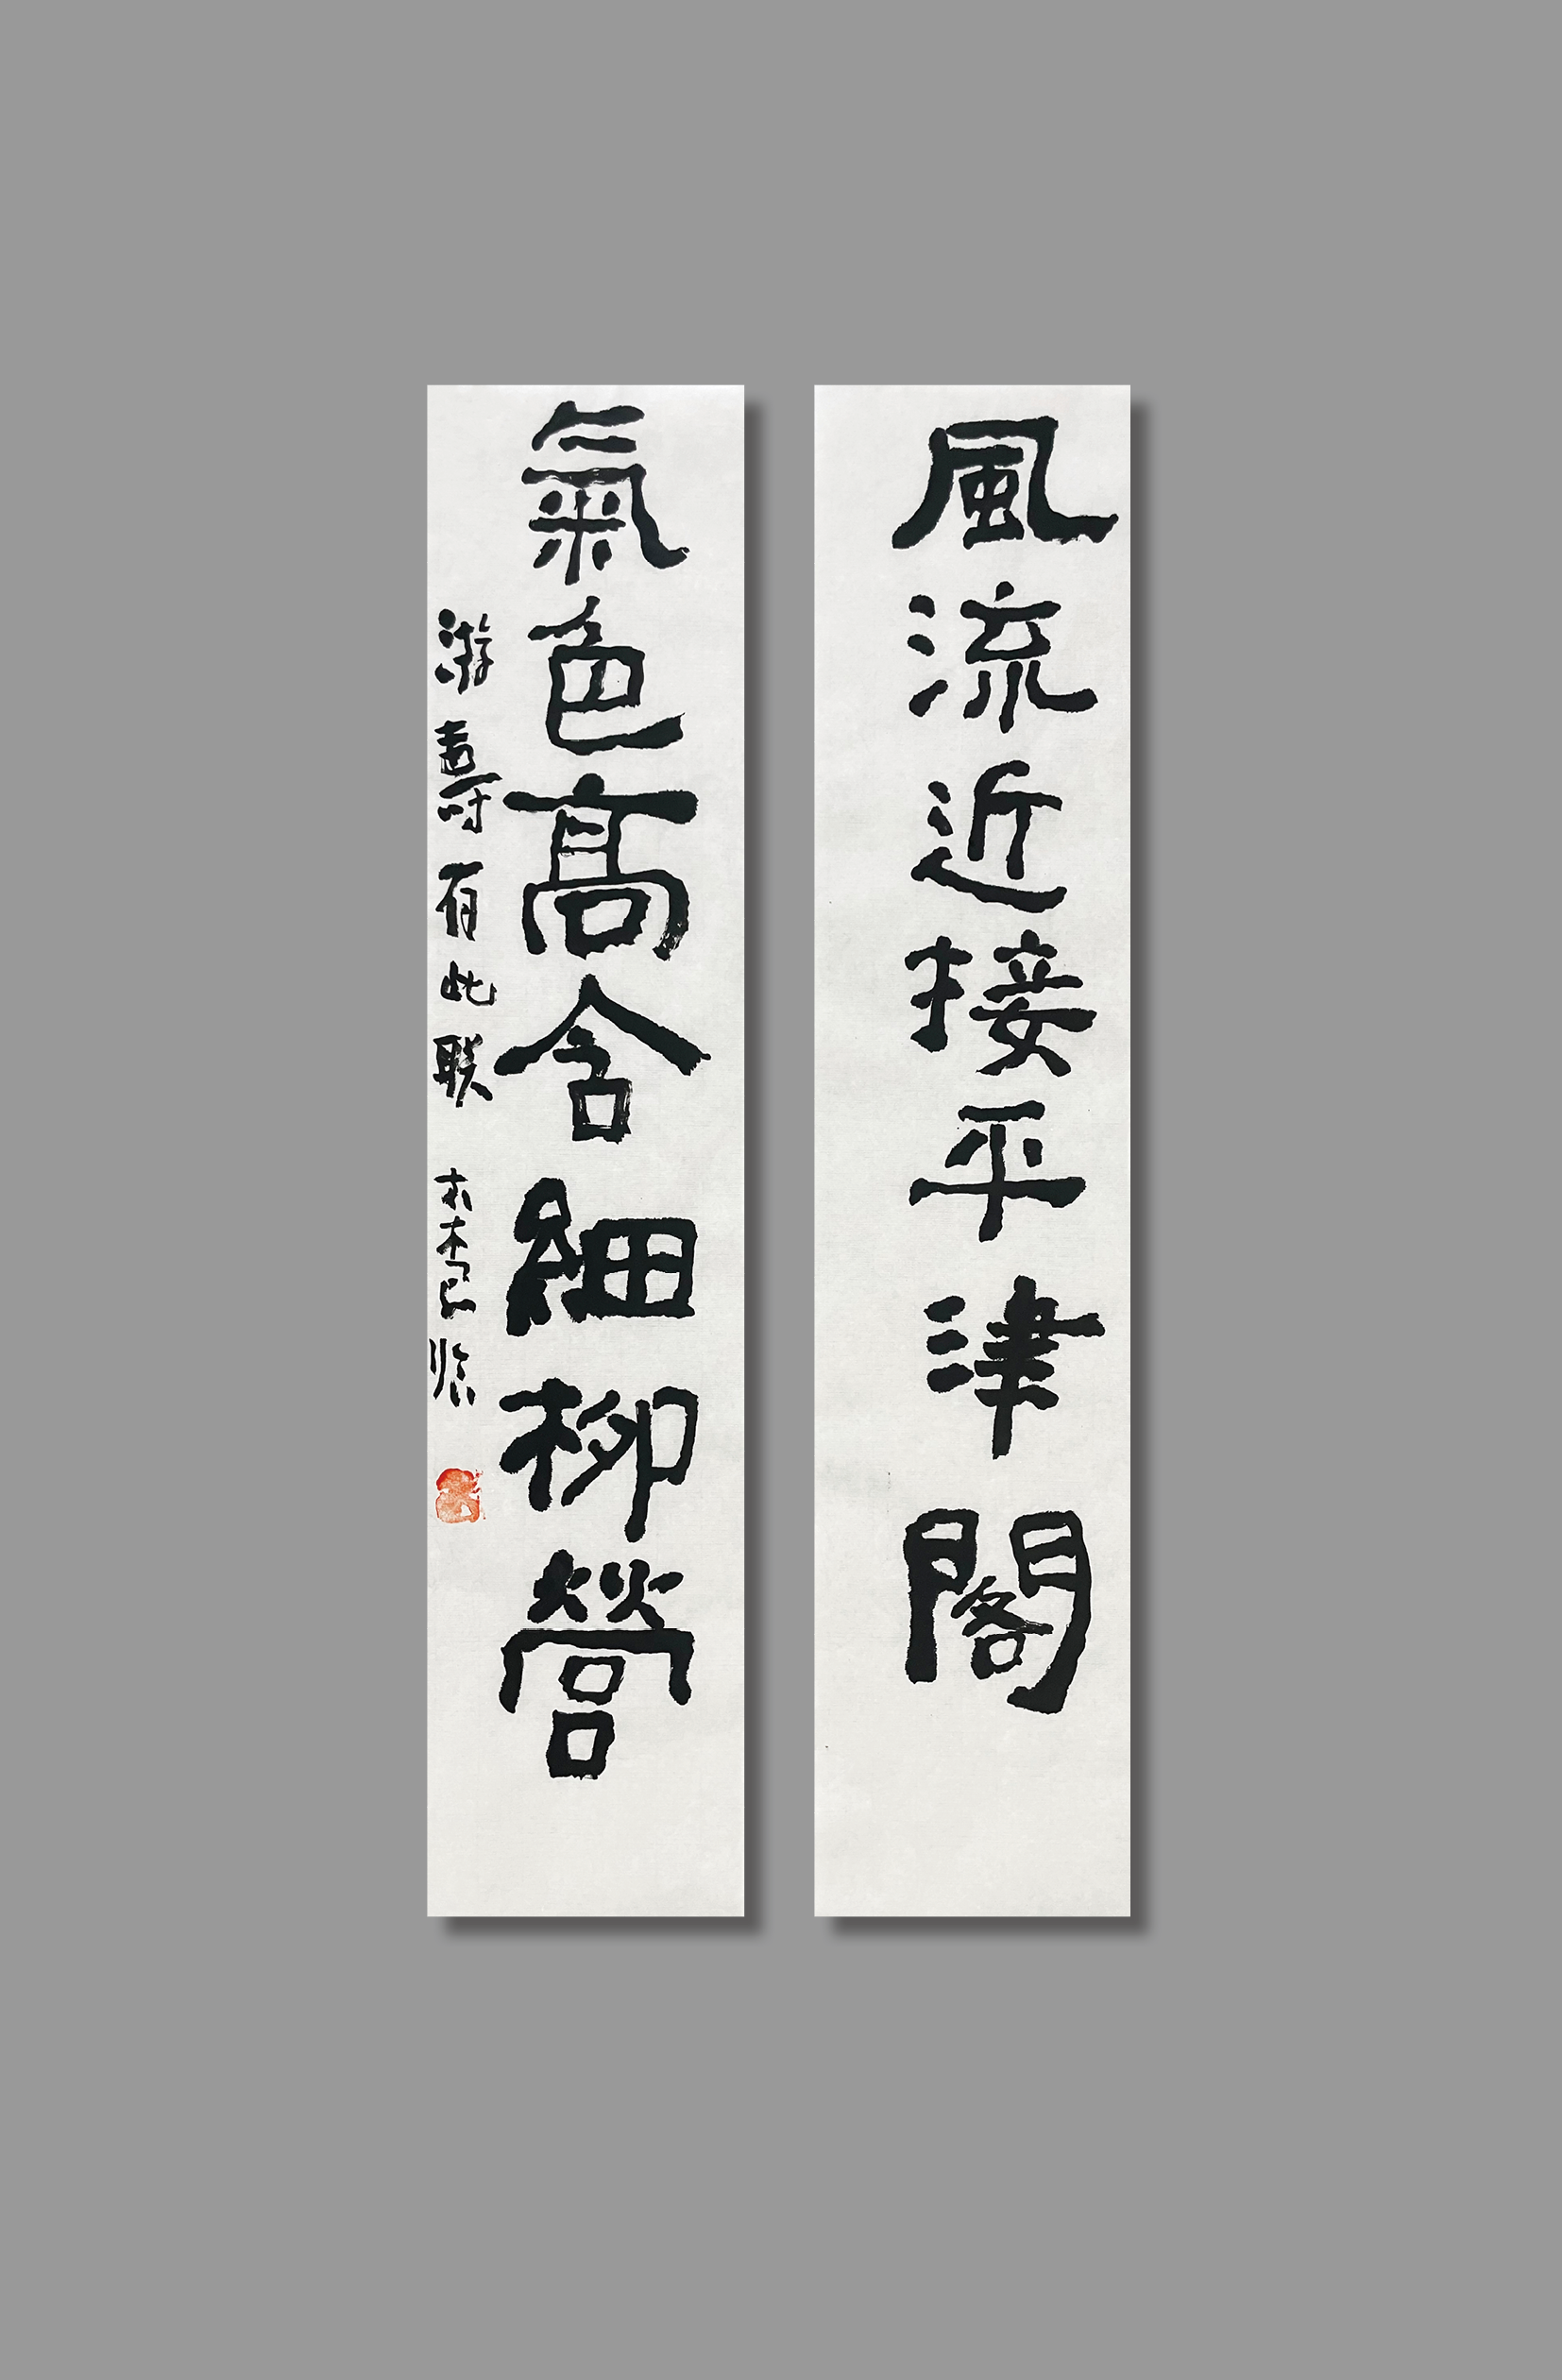 風流近接平津閣
氣色高含細柳營
游壽有此联 木木 臨